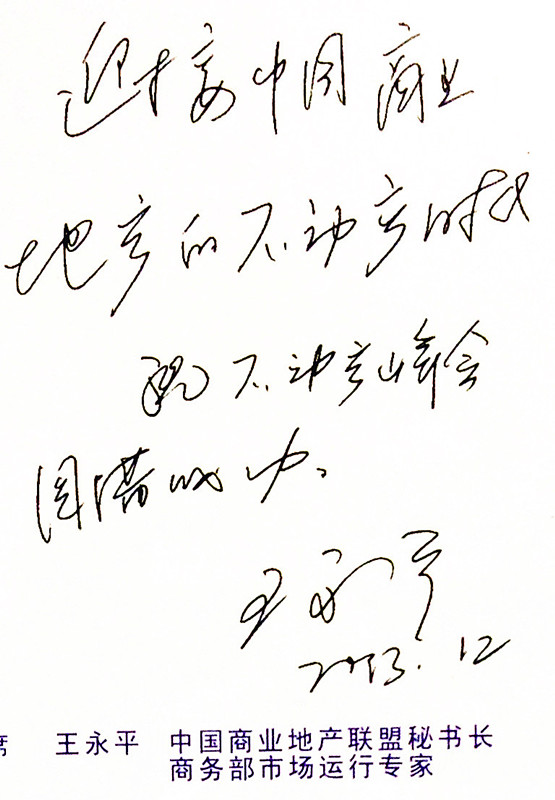 迎接中国商业
地产的不动产时代
祝不动产峰会
圆满成功。
王永平
2013.12
席 王永平 中国商业地产联盟秘书长
商务部市场运行专家